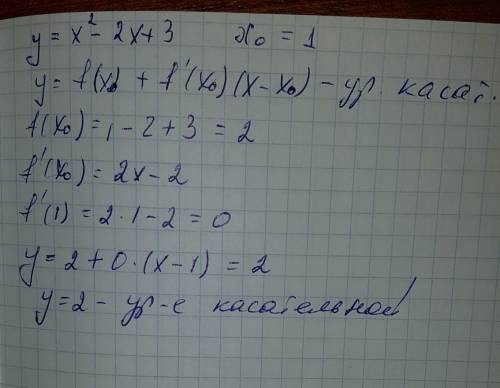 y = x² - 2x + 3    x₀ = 1
y = f(x₀) + f'(x₀)(x - x₀) - ур. касат.
f(x₀) = 1 - 2 + 3 = 2
f'(x₀) = 2x - 2
f'(1) = 2 · 1 - 2 = 0
y = 2 + 0 · (x - 1) = 2
y = 2 - ур-е касательной